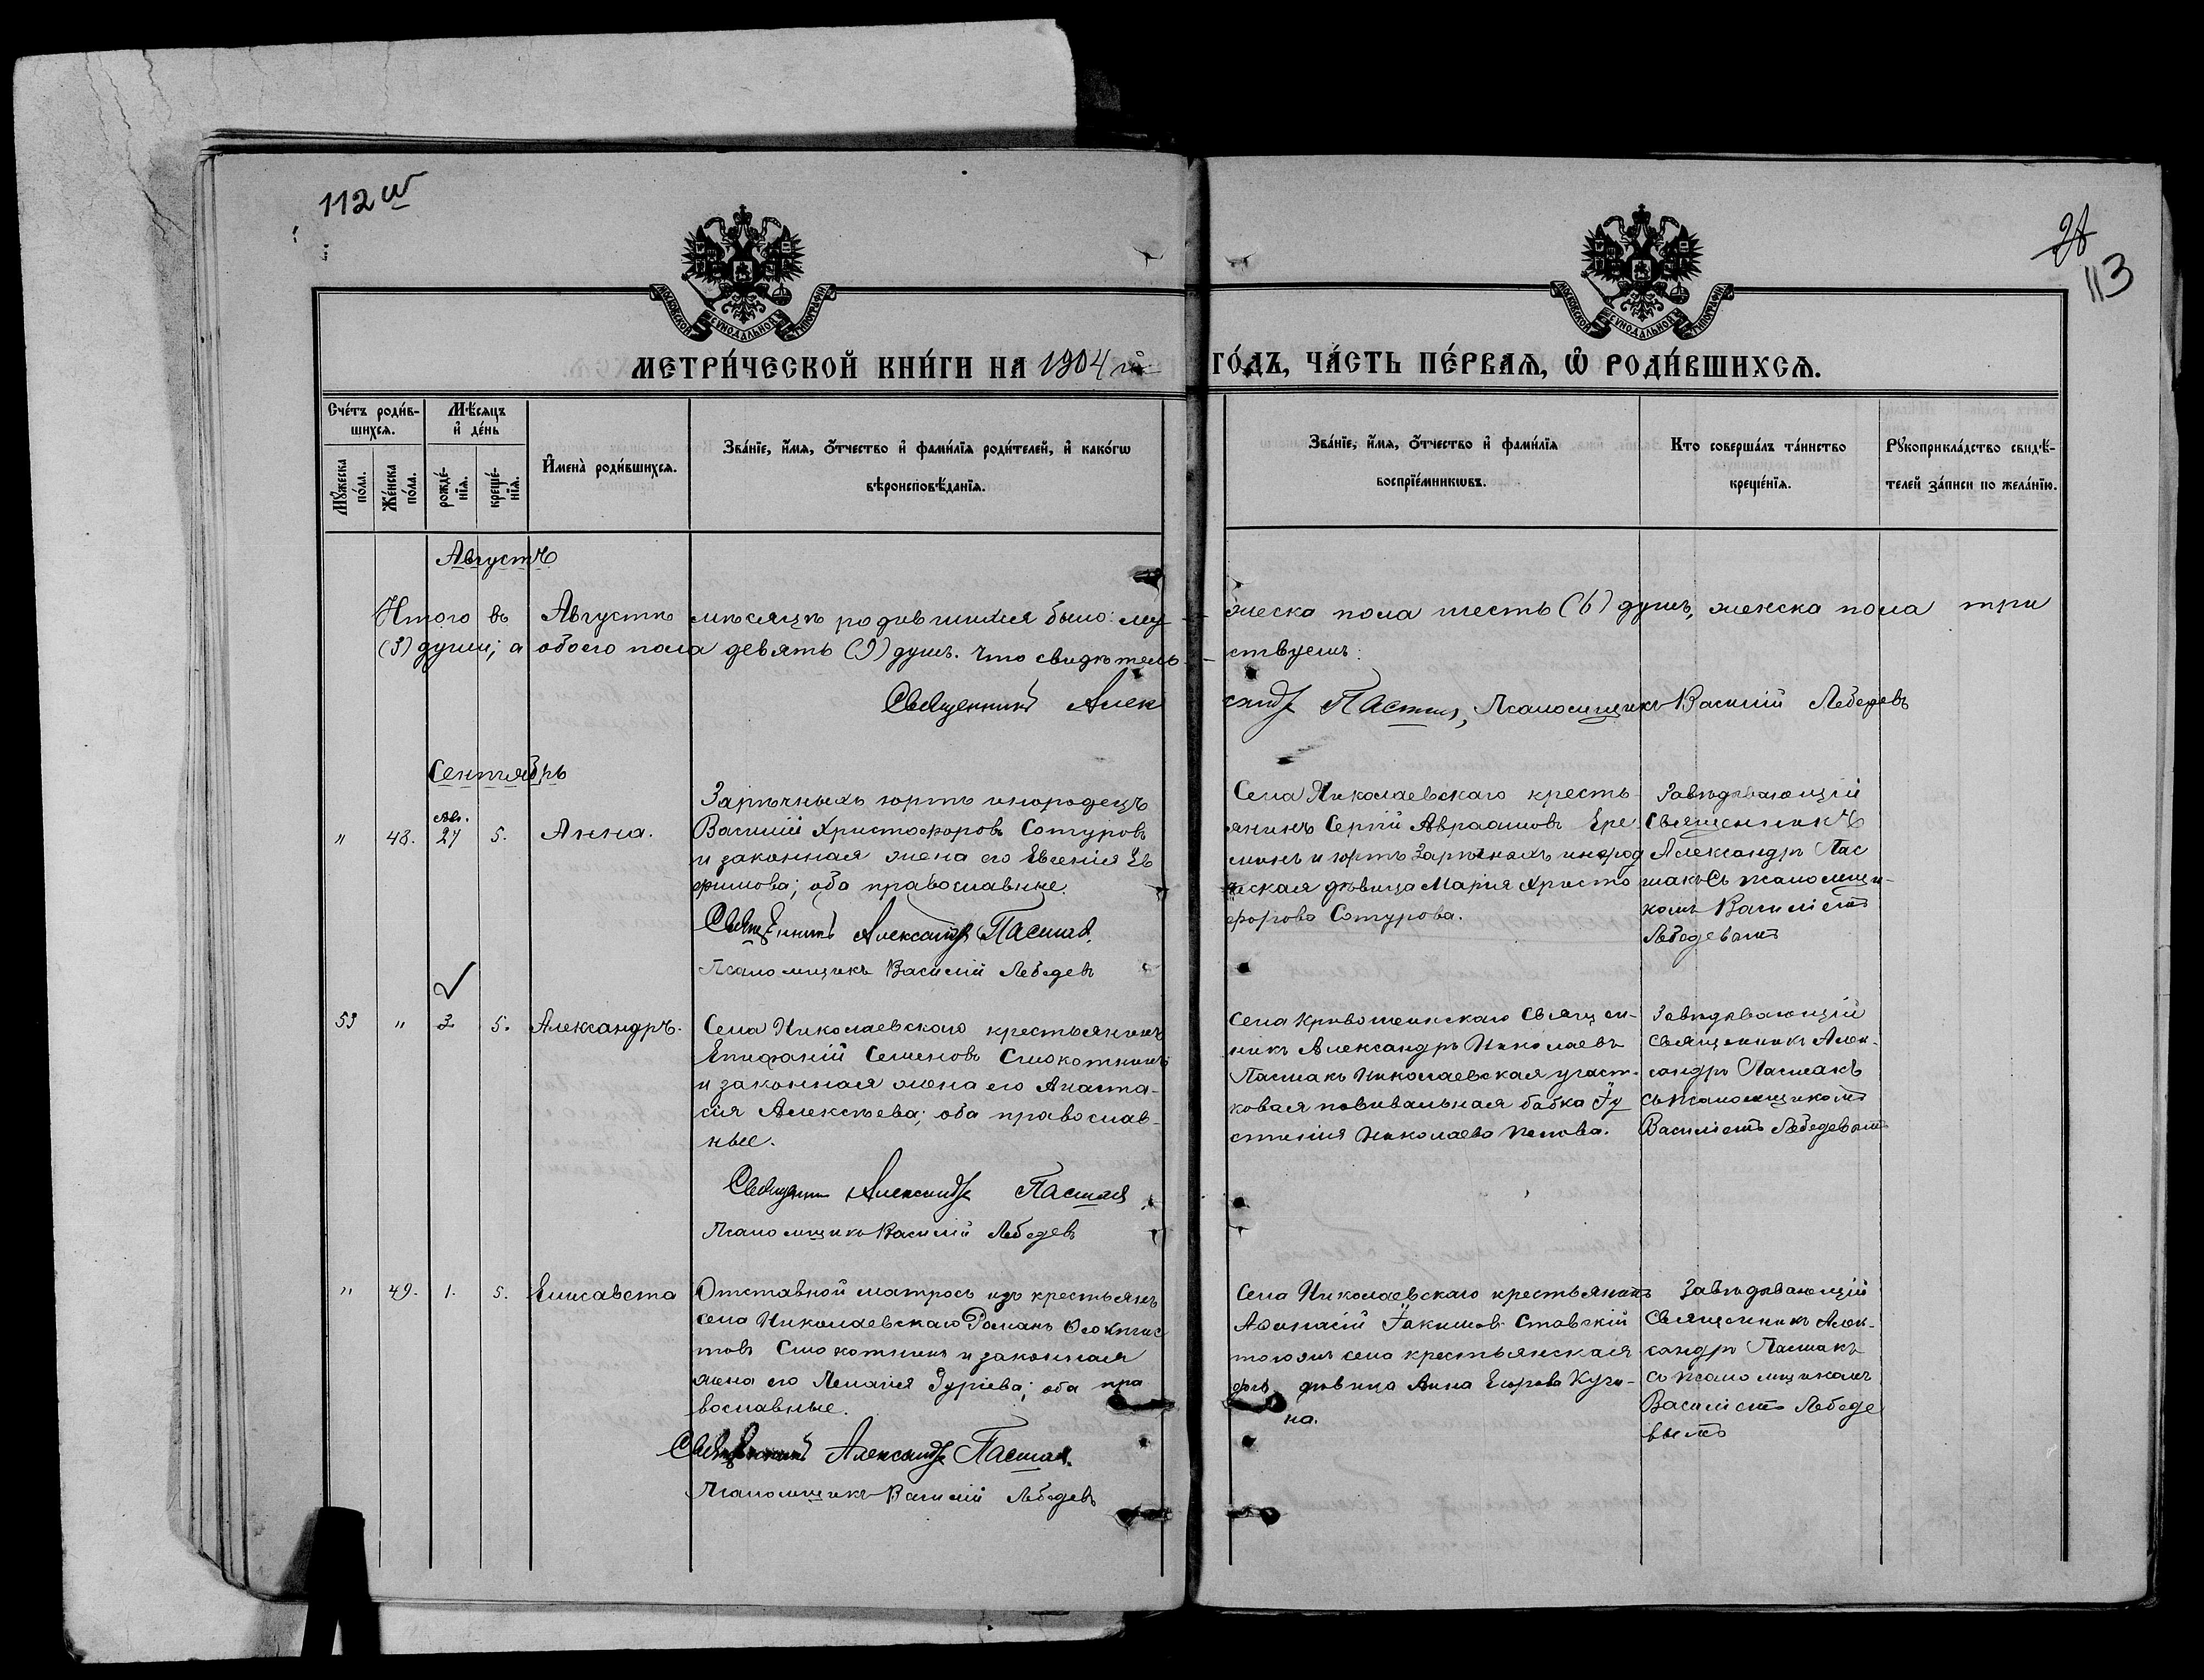 112 об
28
113
МОСКОВСКОЙ СѴНОДАЛЬНОЙ ТИПОГРАФІИ
МОСКОВСКОЙ СѴНОДАЛЬНОЙ ТИПОГРАФІИ
МЕТРИ́ЧЕСКОЙ КНИ́ГИ НА 1904 й ГО́ДЪ, ЧА́СТЬ ПЕ́РВАѦ, Ѽ РОДИ́ВШИХСѦ.
Счéтъ роди́в-
шихсѧ.
Мꙋжеска по́ла.
Же́нска по́ла.
Мѣ́сѧцъ
и҆ де́нь
рожде́-
нїѧ.
креще́-
нїѧ.
И҆мена̀ роди́вшихсѧ.
Зва́нїе, и҆́мѧ, ѻ҆́тчество и҆ фами́лїѧ роди́телей, и҆ како́гѡ
вѣроисповѣ́данїѧ.
Зва́нїе, и҆́мѧ, ѻ҆́тчество и҆ фами́лїѧ
воспрїе́мникѡвъ.
Кто соверша́лъ та́инство
креще́нїѧ.
Рꙋкоприкла́дство свидѣ́-
телей за́писи по жела́нїю.
Августъ
Итого въ Августѣ мѣсяцѣ родившихся было: му- жеска пола шесть (6) душъ, женска пола три
(3) души; а обоего пола девять (9) душъ. Что свидѣтель- ствуемъ:
Священникъ Александръ Пасмакъ, Псаломщикъ Василій Лебедевъ
Сентябрь
" 48. Ав. 27 5. Анна.
Зарѣчныхъ юртъ инородецъ
Василій Христофоровъ Сотуровъ
и законная жена его Евгенія Ев
фимова; оба православные.
Священникъ Александръ Пасмакъ.
Псаломщикъ Василій Лебедевъ
Села Николаевскаго кресть-
янинъ Сергій Авраамовъ Ере
минъ и юртъ Зарѣчныхъ инород
ческая дѣвица Марія Христо
форова Сотурова.
Завѣдывающій
Священникъ
Александръ Пас
макъ съ псаломщи-
комъ Василіемъ
Лебедевымъ
53 " 3 5. Александръ.
Села Николаевскаго крестьянинъ
Епифаній Семеновъ Смокотнинъ
и законная жена его Анаста-
сія Алексѣева; оба православ-
ные.
Священникъ Александръ Пасмакъ
Псаломщикъ Василій Лебедевъ
Села Кривошеинскаго Священ-
никъ Александръ Николаевъ
Пасмакъ Николаевская участ-
ковая повивальная бабка Іу
стинія Николаева Попова.
Завѣдывающій
Священникъ Алек-
сандръ Пасмакъ
съ псаломщикомъ
Василіемъ Лебедевымъ
" 49. 1. 5. Елисавета
Отставной матросъ изъ крестьянъ
села Николаевскаго Романъ Ѳеоктис
товъ Смокотнинъ и законная
жена его Пелагія Гуріева; оба пра
вославные.
Священникъ Александръ Пасмакъ.
Псаломщикъ Василій Лебедевъ
Села Николаевскаго крестьянинъ
Аѳанасій Іакимовъ Ставскій
того же села крестьянская
дѣвица Анна Егорова Кузи-
на.
Завѣдывающій
Священникъ Алек-
сандръ Пасмакъ
съ псаломщикомъ
Василіемъ Лебеде
вымъ